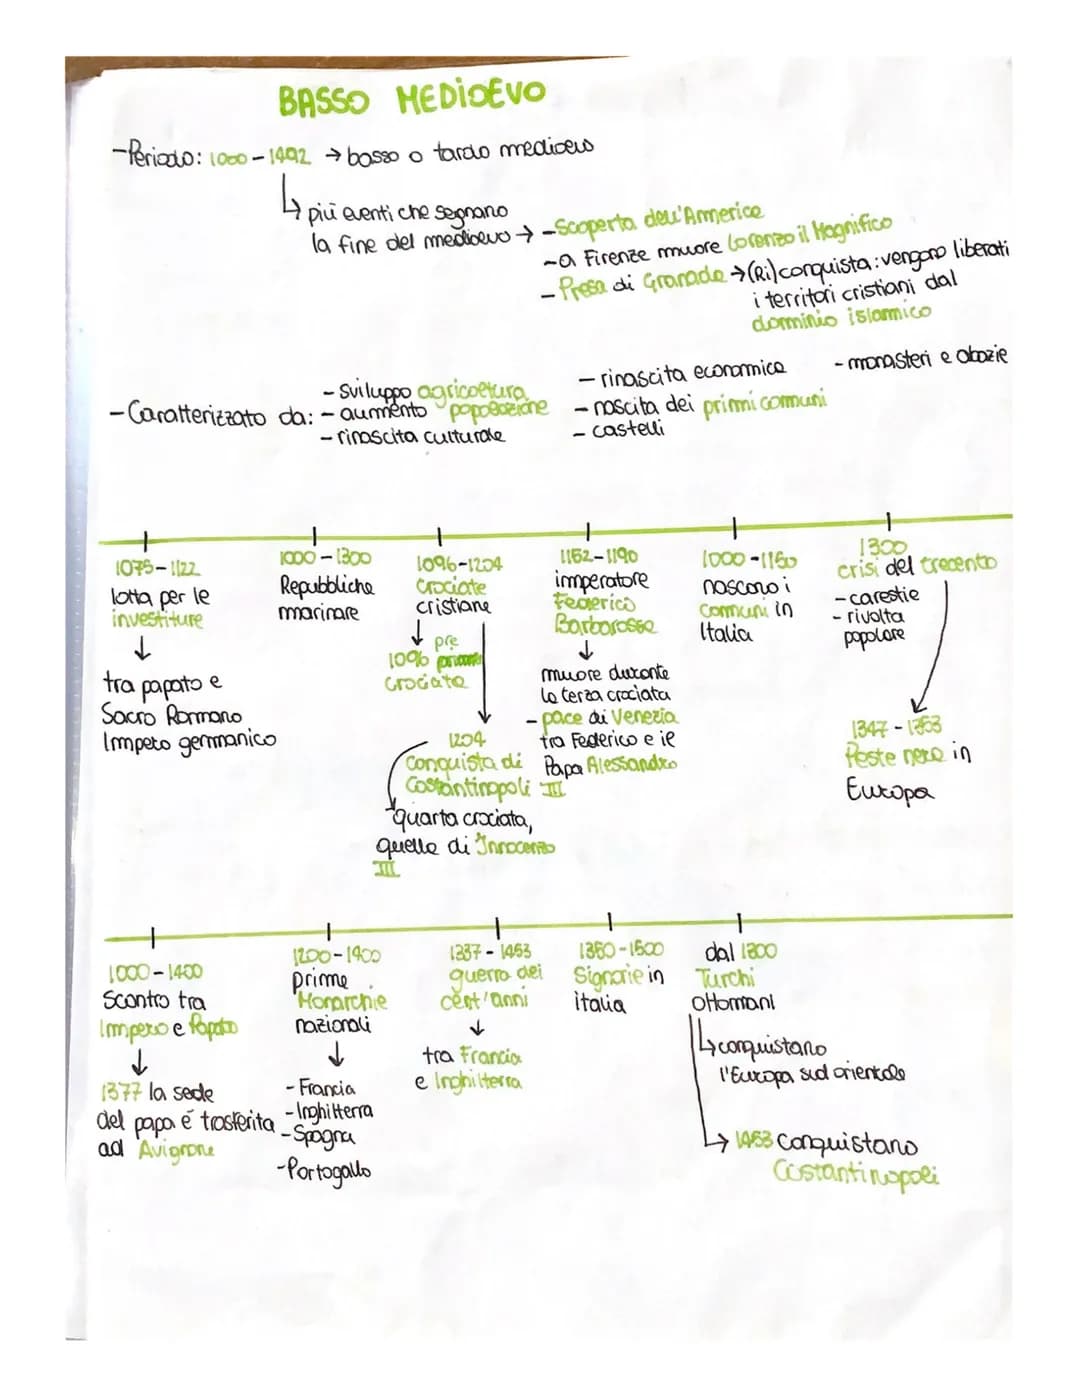 BASSO MEDIOEVO
-Periodo: 1000-1492 → basso o tardo medioevo
↳ più eventi che segnano
la fine del medioevo → -Scoperta dell'America
-a Firenze muore Lorenzo il Magnifico
-Presa di Granada → (Ri)conquista: vengono liberati
i territori cristiani dal
dominio islamico
-Caratterizzato da:
- sviluppo agricoltura
- aumento popolazione
- rinascita culturale
- rinascita economica
- nascita dei primi comuni
- castelli
- monasteri e abazie
1075-1122
lotta per le
investiture
↓
tra papato e
Sacro Romano
Impero germanico
1000-1300
Repubbliche
marinare
1096-1204
Crociate
cristiane
↓ pre
1096
crociata
1204
conquista di
Costantinopoli
quarta crociata,
quella di Innocenzo
III
1152-1190
imperatore
Federico
Barbarossa
↓
muore durante
la terza crociata
- pace di Venezia
tra Federico e il
Papa Alessandro
III
1000-1150
nascono i
Comuni in
Italia
1300
crisi del trecento
- carestie
- rivolta
popolare
1347-1353
Peste nera in
Europa
1000-1400
Scontro tra
Impero e Papato
↓
1377 la sede
del papa é trasferita
ad Avignone
1200-1400
prime
Monarchie
nazionali
↓
- Francia
- Inghilterra
- Spagna
- Portogallo
1337-1453
guerra dei
cent'anni
↓
tra Francia
e Inghilterra
1350-1500
Signorie in
italia
dal 1300
Turchi
ottomani
↳ conquistano
l'Europa sud orientale
→ 1453 conquistano
Costantinopoli